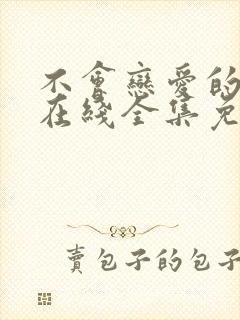 不會戀愛的
在綫全集免
賣包子的包子